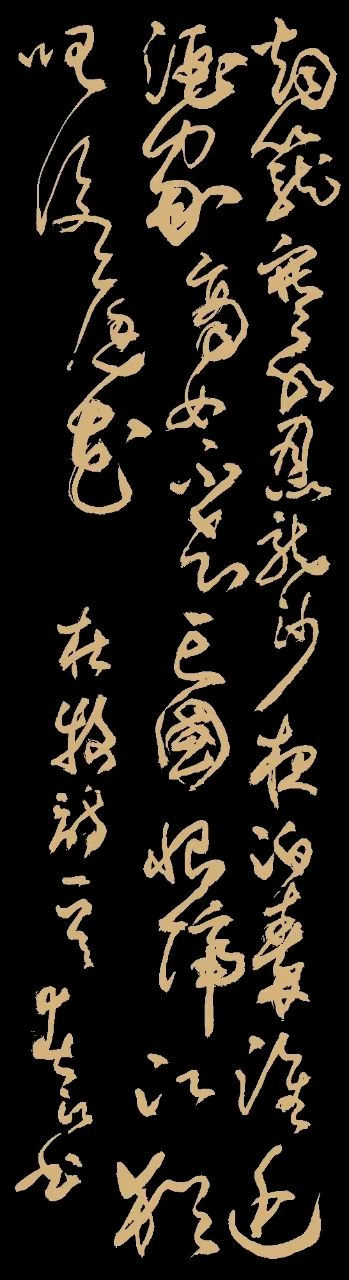 烟籠寒水月籠沙夜泊秦淮近
酒家商女不知亡國恨隔江猶
唱後庭花
杜牧詩一首
书